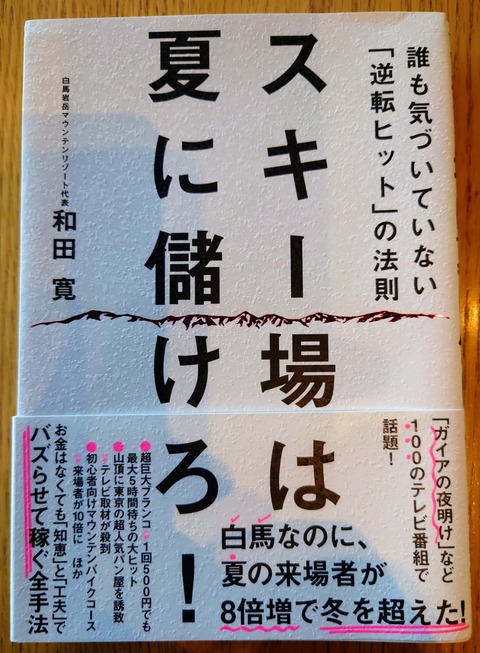 誰も気づいていない
「逆転ヒット」の法則
スキー場は
夏に儲けろ！
白馬岩岳マウンテンリゾート代表
和田 寛
「ガイアの夜明け」など
100のテレビ番組で
話題！
白馬なのに、
夏の来場者が
8倍増で冬を超えた!
●超巨大ブランコ 1回500円でも
最大5時間待ちの大ヒット
●山頂に東京の超人気パン屋を誘致
テレビ取材が殺到
●初心者向けマウンテンバイクコース
来場者が10倍に ほか
お金はなくても「知恵」と「工夫」で
バズらせて稼ぐ全手法